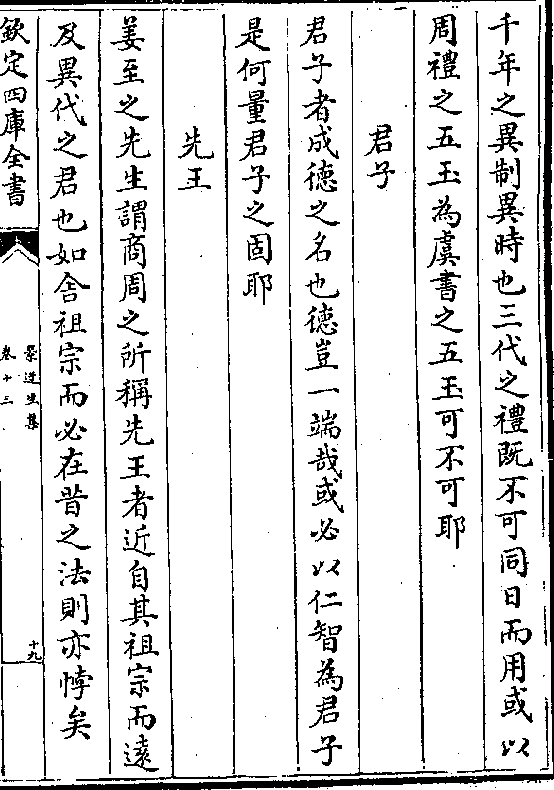 千年之異制異時也三代之禮既不可同日而用或以
周禮之五玉為虞書之五玉可不可耶
君子
君子者成德之名也德豈一端哉或必以仁智為君子
是何量君子之固耶
先王
姜至之先生謂商周之所稱先王者近自其祖宗而遠
及異代之君也如舍祖宗而必在昔之法則亦悖矣
欽定四庫全書
景迂生集
卷十三
十九